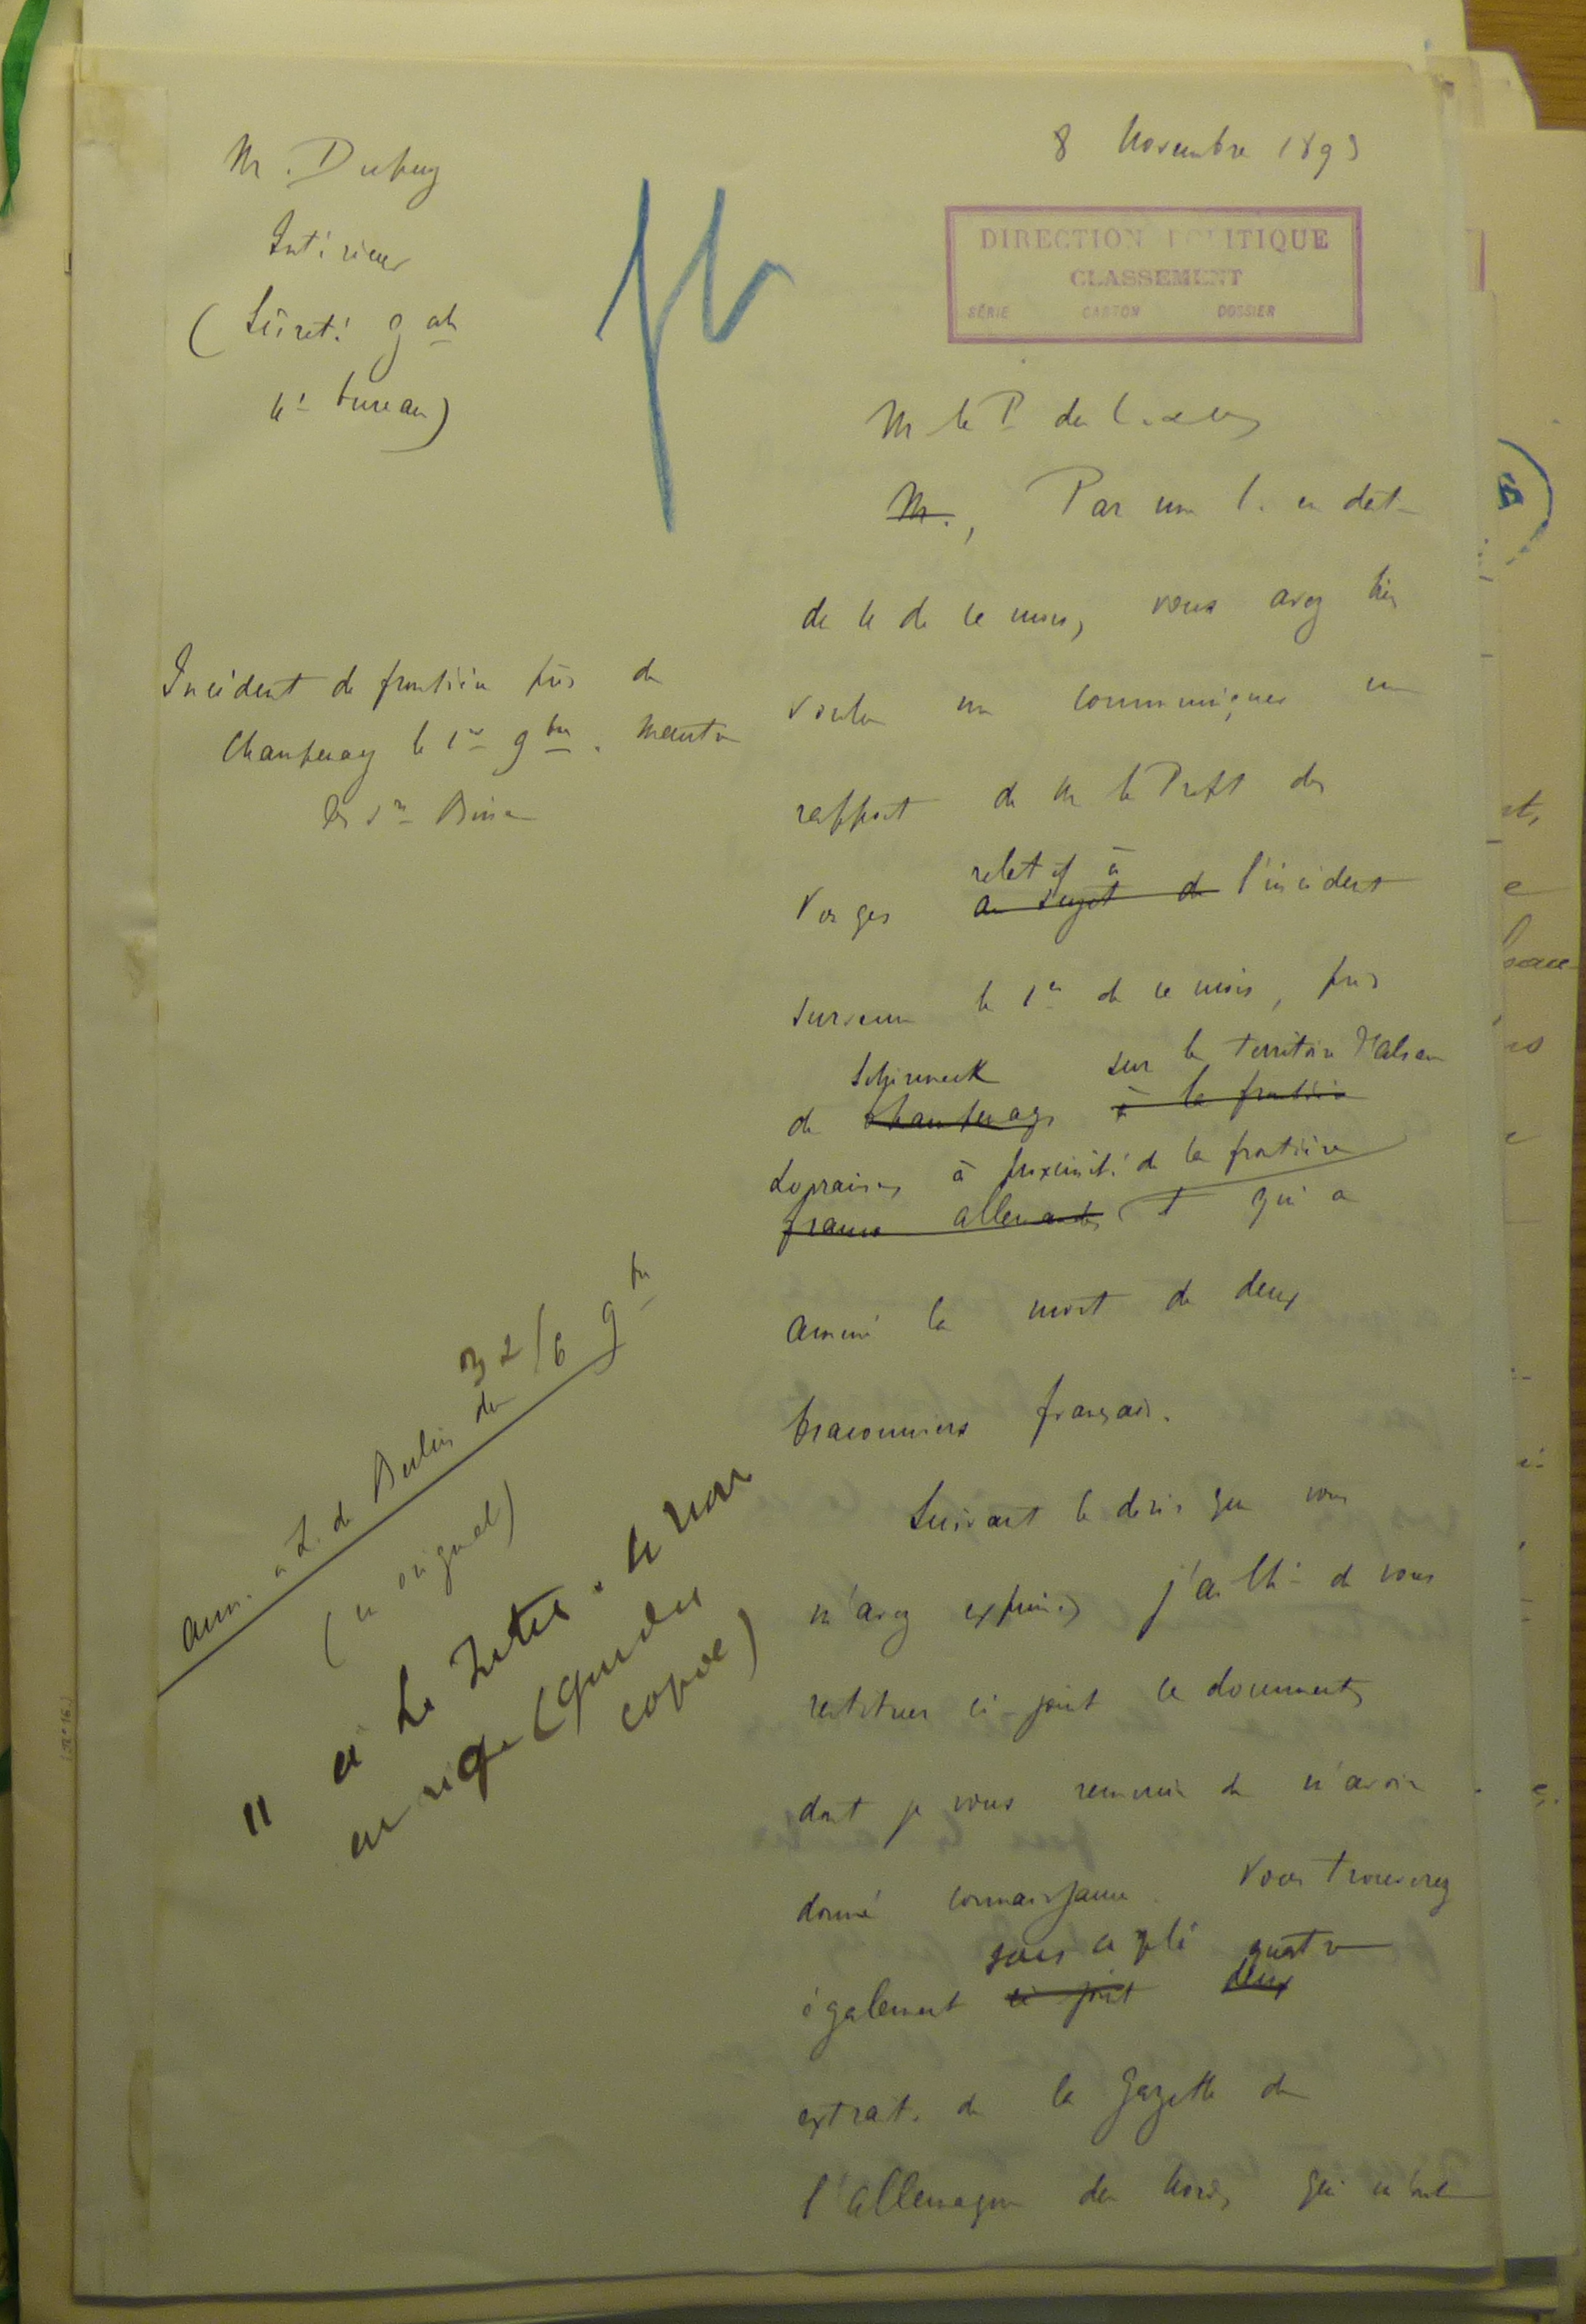 8 Novembre 1893
M. Dupuy
Intérieur
(Sûreté gale
4e bureau)
DIRECTION POLITIQUE
CLASSEMENT
SÉRIE CARTON DOSSIER
Incident de frontière près de
Champenay le 1er 9bre. Meurtre
M le P du C.
M., Par une l. en date
de le de ce mois, vous avez bien
voulu me communiquer un
rapport de M le Préft des
Vosges au sujet de relatif à l'incident
survenu le 1er de ce mois, près
de Champenay Schirmeck à la frontière sur le territoire d'Alsace
franco allemande Lorraine, à proximité de la frontière et qui a
amené la mort de deux
braconniers français.
Suivant le désir que vous
m'avez exprimé, j'ai l'h. de vous
restituer ci joint ce document,
dont je vous remercie de m'avoir
donné connaissance. Vous trouverez
également ci joint sous ce pli deux quatre
extraits de la Gazette de
l'Allemagne du Nord, qui m'ont
ann. à L. de Berlin du 6 9bre
(en original)
" à
(garder
copie)